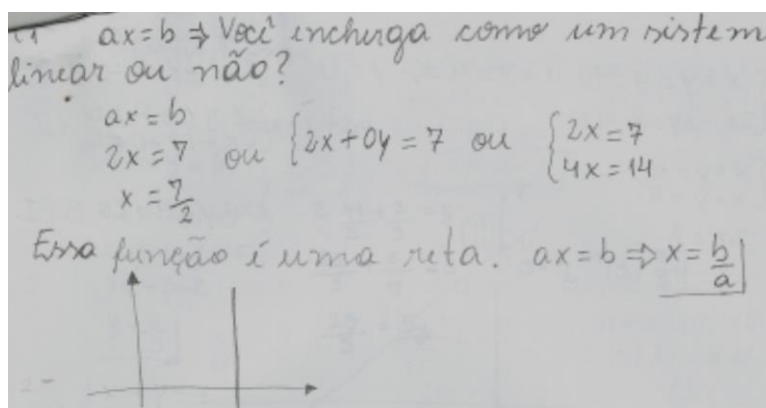 ax=b ⇒ Você incherga como um sistem
linear ou não?
ax = b
2x = 7 ou {2x+0y = 7 ou {2x = 7
4x = 14
x = 7/2
Essa função é uma reta. ax = b ⇒ x = b/a
2-